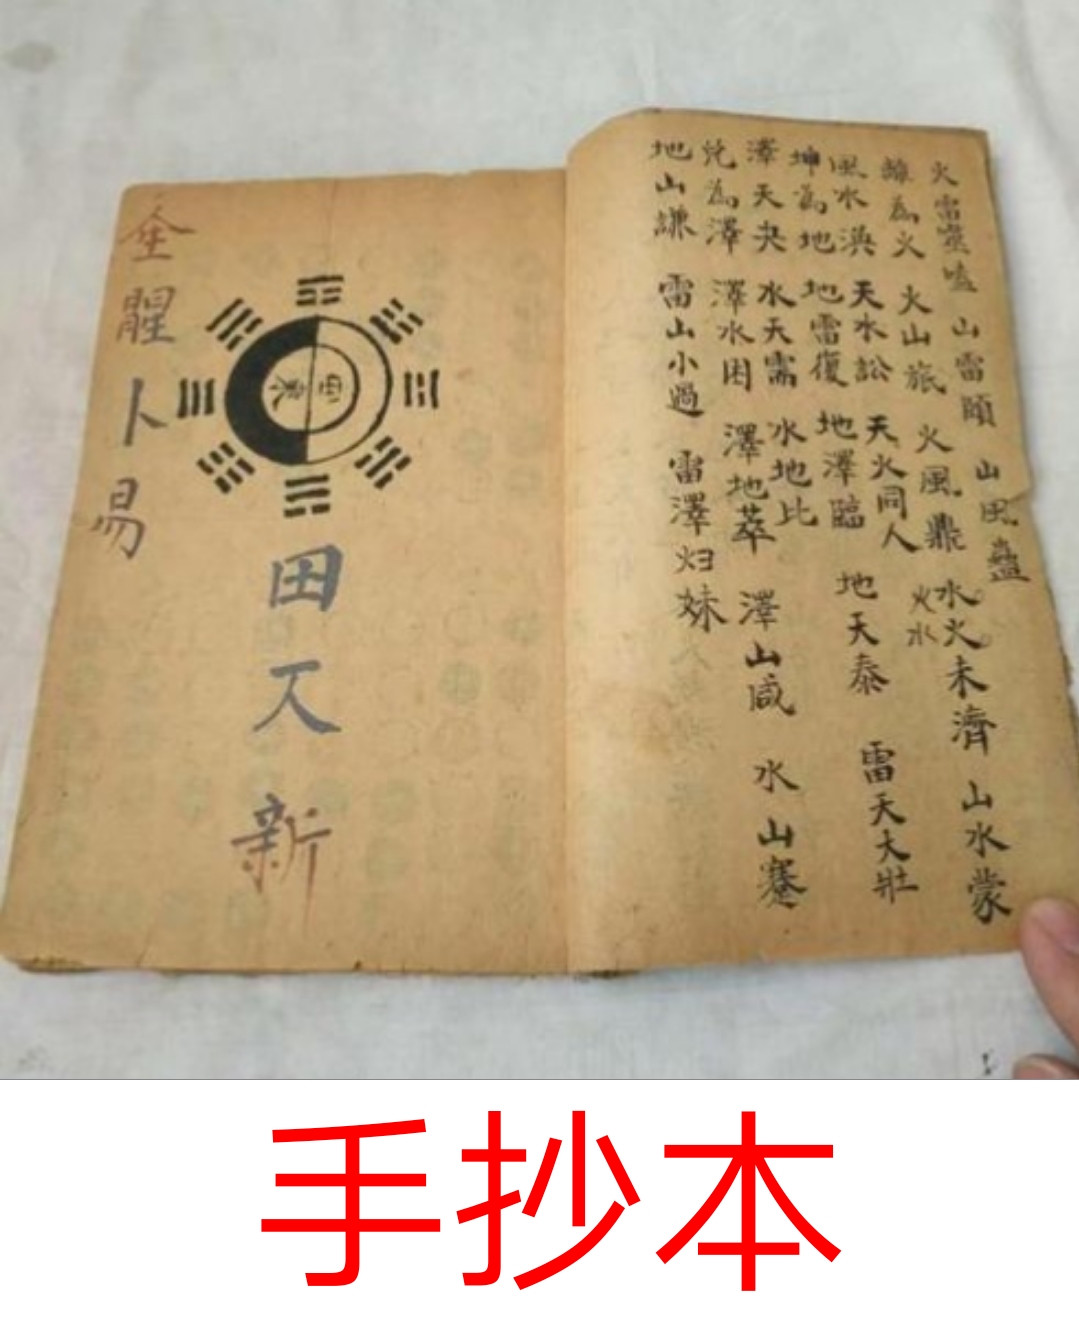 火雷噬嗑 山雷頤 山风蠱
離為火 火山旅 火風鼎 水火未濟 山水蒙
火水
風水渙 天水訟 天火同人
坤為地 地雷復 地澤臨 地天泰 雷天大壯
澤天夬 水天需 水地比
兌為澤 澤水困 澤地萃 澤山咸 水山蹇
地山謙 雷山小過 雷澤归妹
西東
田 新
卜易
手抄本